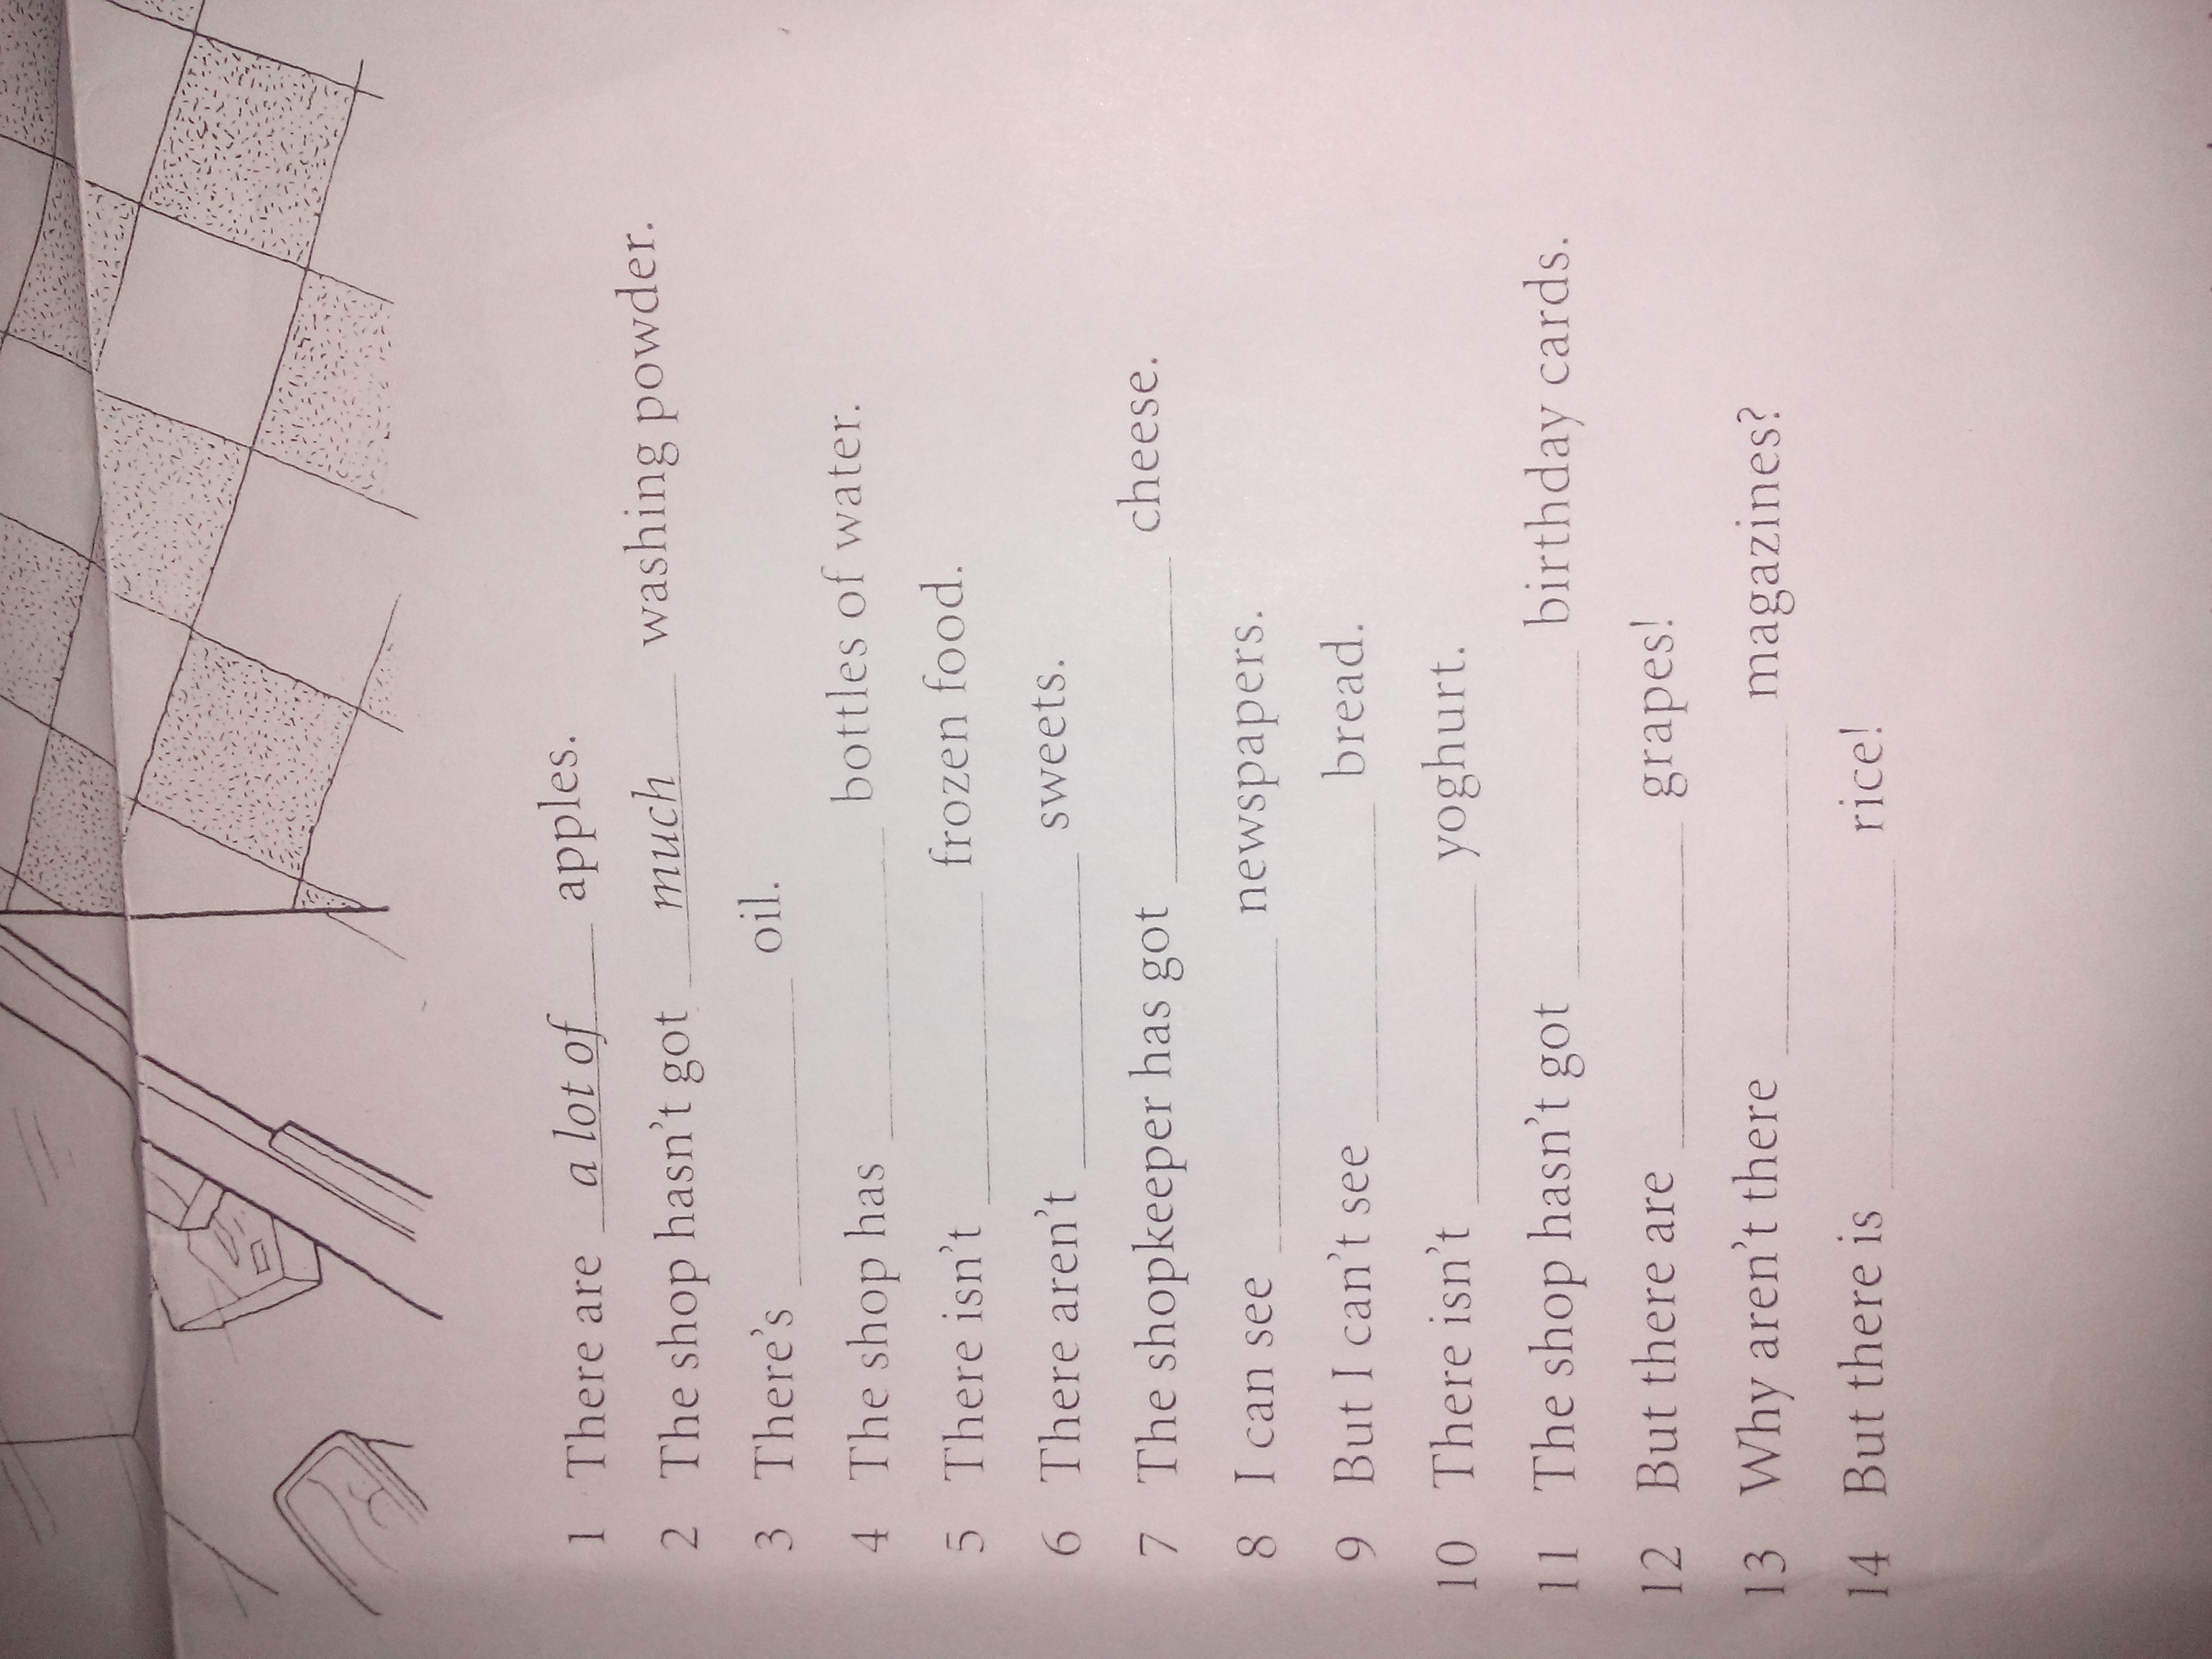 1 There are a lot of apples.
2 The shop hasn't got much washing powder.
3 There's ______ oil.
4 The shop has ______ bottles of water.
5 There isn't ______ frozen food.
6 There aren't ______ sweets.
7 The shopkeeper has got ______ cheese.
8 I can see ______ newspapers.
9 But I can't see ______ bread.
10 There isn't ______ yoghurt.
11 The shop hasn't got ______ birthday cards.
12 But there are ______ grapes!
13 Why aren't there ______ magazines?
14 But there is ______ rice!